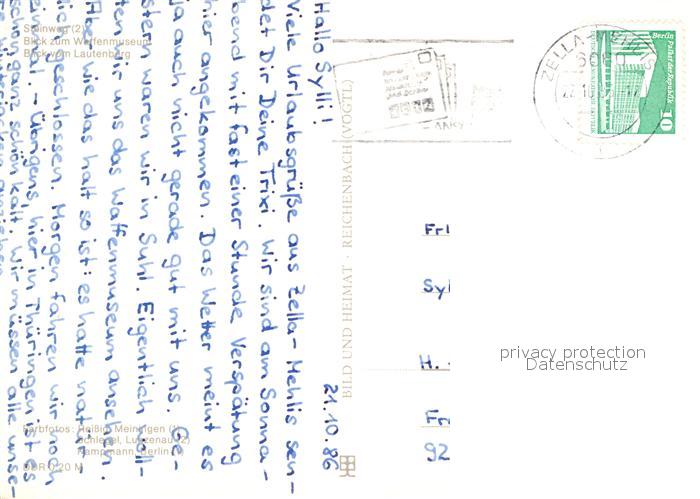 Steinweg (2)
Blick zum Waffenmuseum
Blick vom Lautenberg
Farbfotos: Heißig Meiningen (1)
Schlegel, Luisenau (2)
Kampmann, Berlin (1)
DDR 0,20 M
21.10.86
Hallo Sylli!
Viele Urlaubsgrüße aus Zella-Mehlis sen-
det Dir Deine Trixi. Wir sind am Sonna-
bend mit fast einer Stunde Verspätung
hier angekommen. Das Wetter meint es
ja auch nicht gerade gut mit uns. Ge-
stern waren wir in Suhl. Eigentlich woll-
ten wir uns das Waffenmuseum ansehen.
Aber wie das halt so ist: es hatte natür-
lich geschlossen. Morgen fahren wir noch
einmal. - Übrigens, hier in Thüringen ist es
schon ganz schön kalt. Wir müssen alle unse-
anziehen
BILD UND HEIMAT · REICHENBACH (VOGTL)
ZELLA-MEHLIS
6060
Berlin
Palast der Republik
10
Frl
Syl
H.
Fr
92
privacy protection
Datenschutz